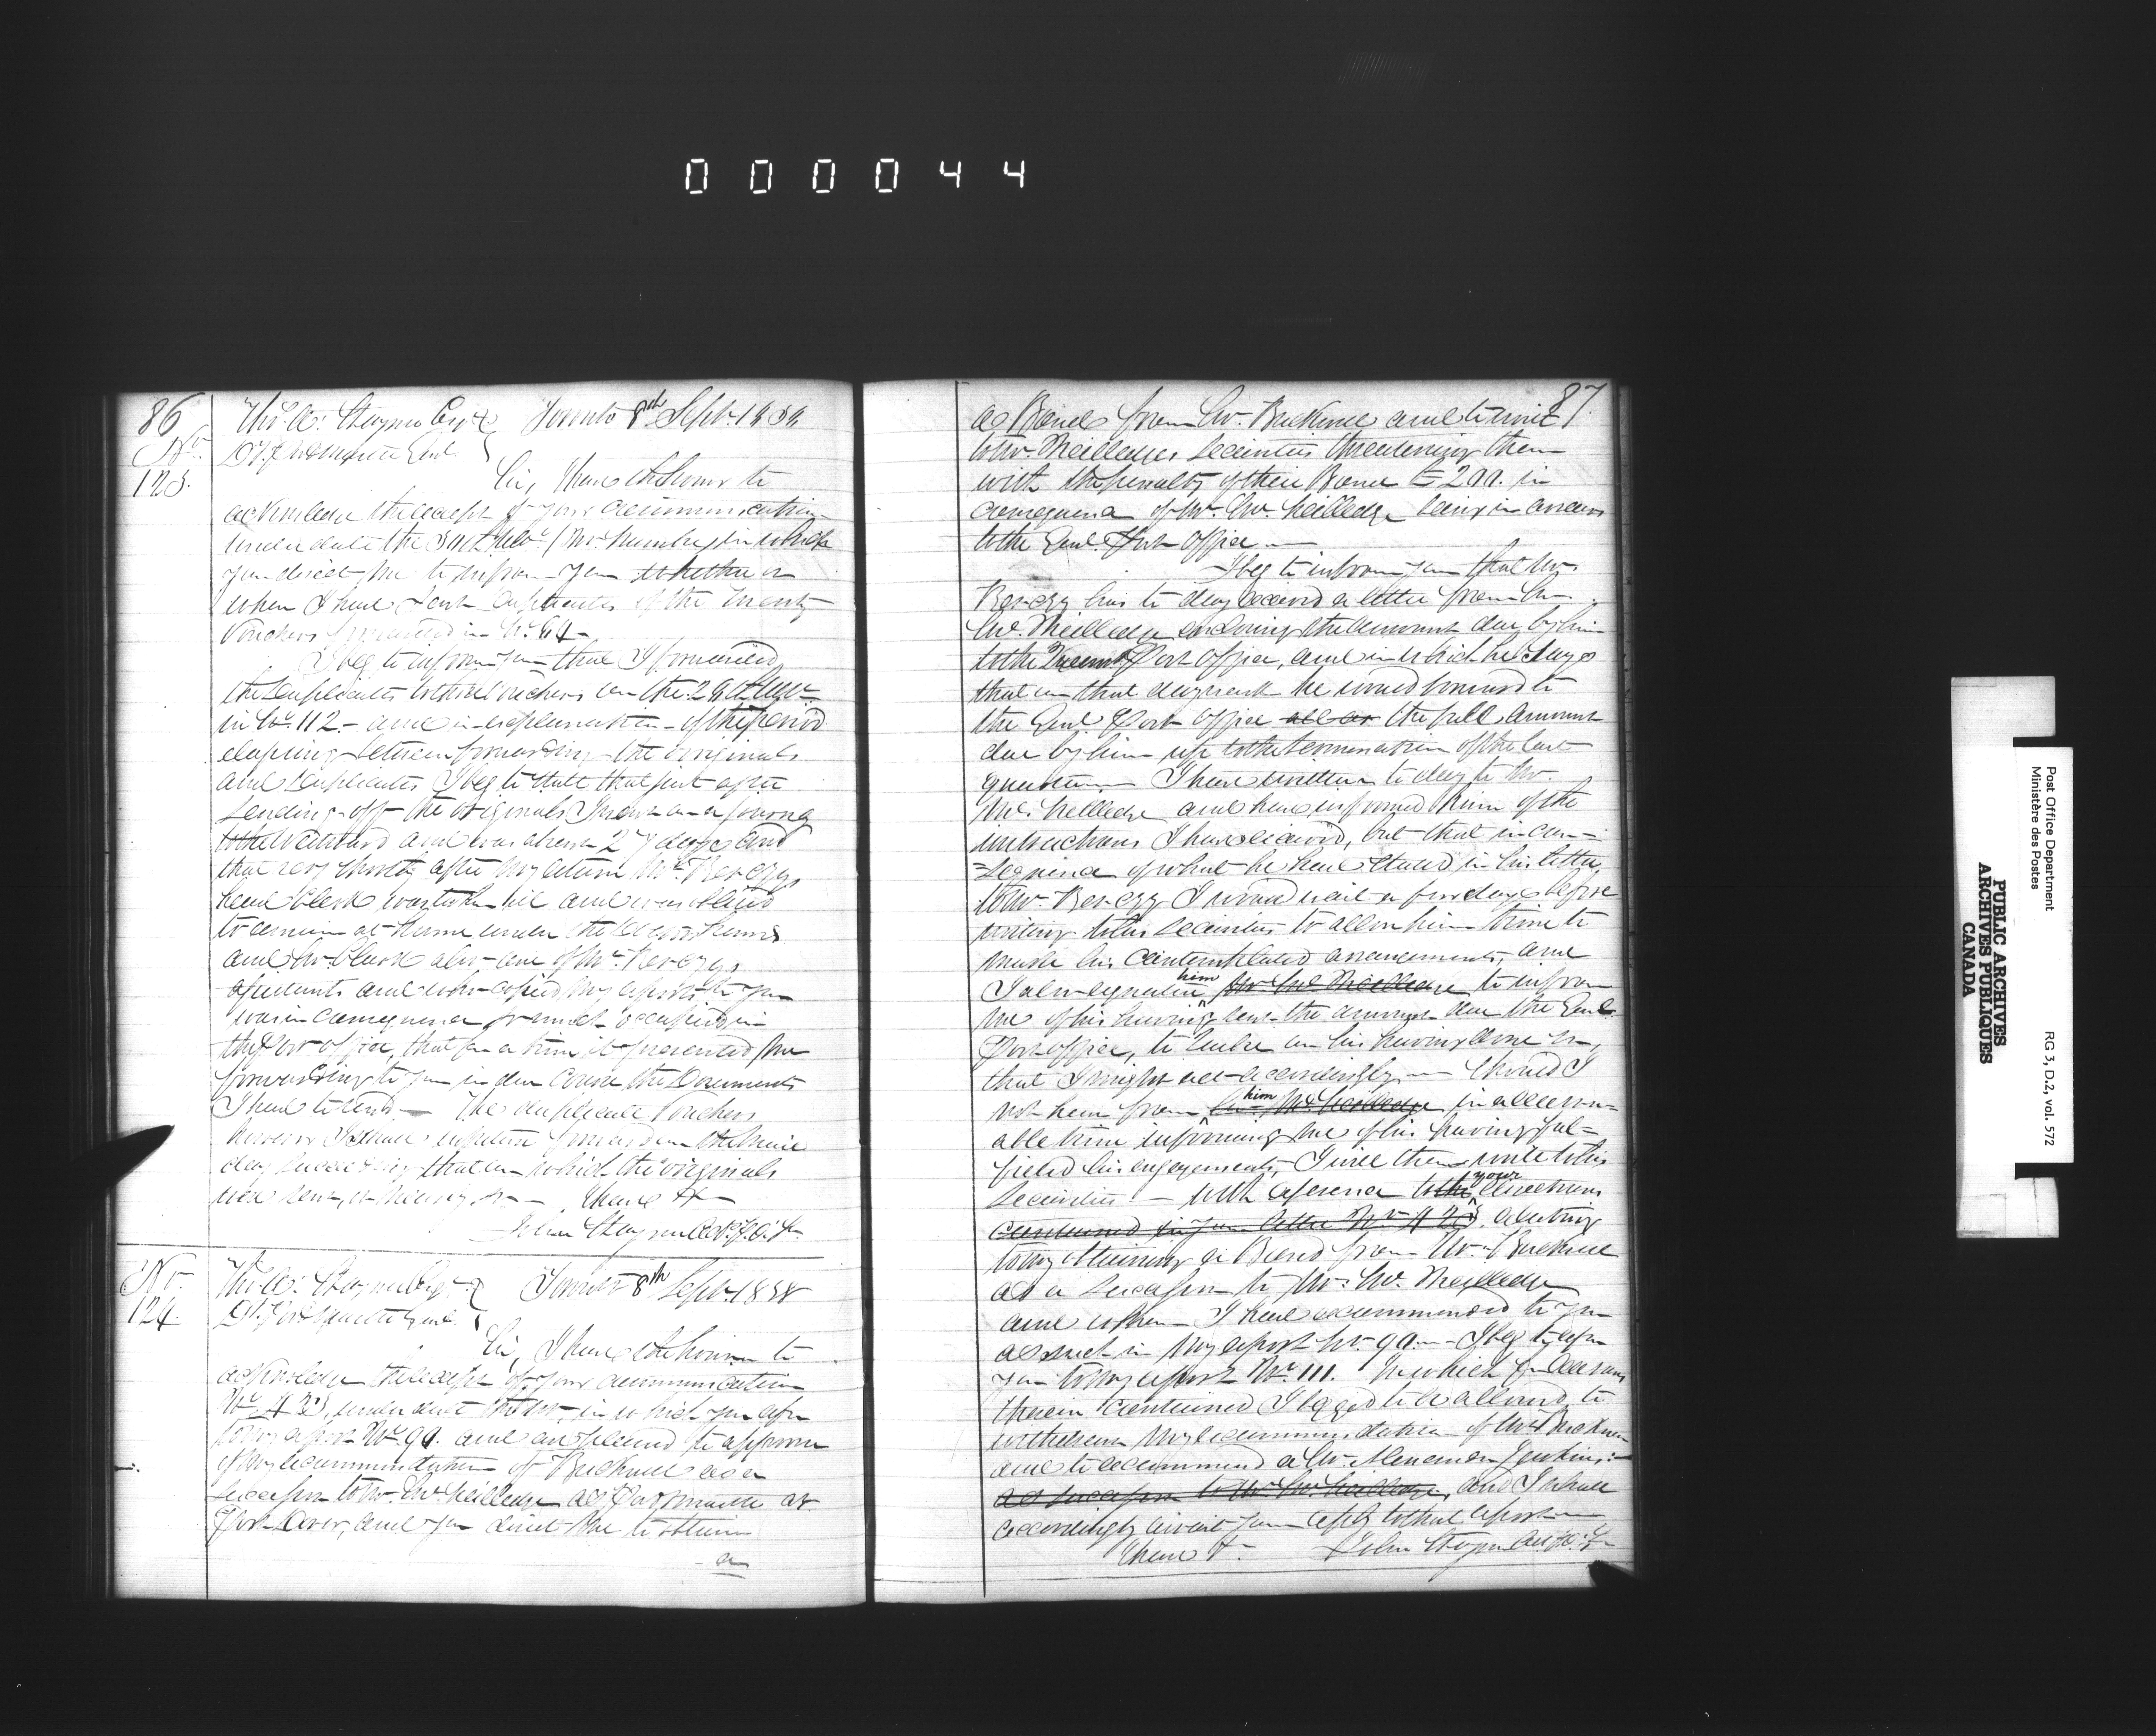 000044
86
No.
123.
Thos. A: Stayner Esqr
Toronto 8th Sept. 1838
Dy. Postmaster Genl.
Sir, I have the honor to
acknowledge the receipt of your communication
under date the Inst. (no number) in which
you direct me to inform you whether or
when I had sent duplicates of the twenty
Vouchers forwarded in No. 64
I beg to inform you that I forwarded
the duplicates of those vouchers on the 29th
in No. 112 - and in explanation of the period
elapsing between forwarding the originals
and duplicates I beg to state that just after
sending off the originals I went on a journey
to the Westward and was absent 27 days and
that very shortly after my return Mr. Berczy's
head Clerk was taken ill and was obliged
to remain at home under the
and Mr. Clark also one of Mr. Berczy's
assistants and who copied my reports to you
was in consequence so much occupied in
the Post office, that for a time it prevented me
forwarding to you in due course the Documents
I had to send - The duplicate Vouchers
however I shall in future forward on the Mail
day succeeding that on which the originals
were sent, or nearly so - I have &c
John Stayner
No.
124.
Thos. A: Stayner Esqr
Toronto 8th Sept. 1838
Dy. Postmaster Genl.
Sir, I have the honor to
acknowledge the receipt of your communication
No. 423, under date the in which you refer
to my report No. 90. and are pleased to approve
of my recommendation of Bucknell as a
successor to Mr. McNeilledge as Postmaster at
Port Dover, and you direct me to obtain
a
87.
a Bond from Mr. Bucknell and to write
to Mr. McNeilledge's securities threatening them
with the penalty of their Bond £200. in
consequence of Mr. McNeilledge being in arrears
to the Genl. Post Office. -
I beg to inform you that Mr.
Berczy has to day received a letter from Mr.
McNeilledge enclosing the amount due by him
to the Toronto Post Office, and in which he says
that on that day week he would forward to
the Genl. Post Office the full amount
due by him up to the termination of the last
quarter - I have written to day to Mr.
McNeilledge and have informed him of the
instructions I have received, but that in con-
=sequence of what he had stated in his letter
to Mr. Berczy I would wait a few days before
writing to his securities to allow him time to
make his contemplated arrangements, and
I also required him Mr McNeilledge to inform
me of his having sent the amount due the Genl.
Post office, to on his having done so,
that I might act accordingly, - Should I
not hear from him Mr. McNeilledge in a reason=
able time informing me of his having ful=
filled his engagements, I will then write to his
securities - With reference to the your directions
contained in your letter No 423, relating
to my obtaining a Bond from Mr. Bucknell
as a successor to Mr. McNeilledge
and whom I had recommended to you
as such in my report No. 90 - I beg to refer
you to my report No. 111. In which for reasons
therein mentioned I begged to be allowed to
withdraw my recommendation of Mr. Bucknell
and to recommend a Mr. Jenkins:
as successor to Mr. McNeilledge, and I shall
accordingly await your reply to that report
I have &c. John Stayner
PUBLIC ARCHIVES
ARCHIVES PUBLIQUES
CANADA
Post Office Department
Ministère des Postes
RG 3, D.2, vol. 572